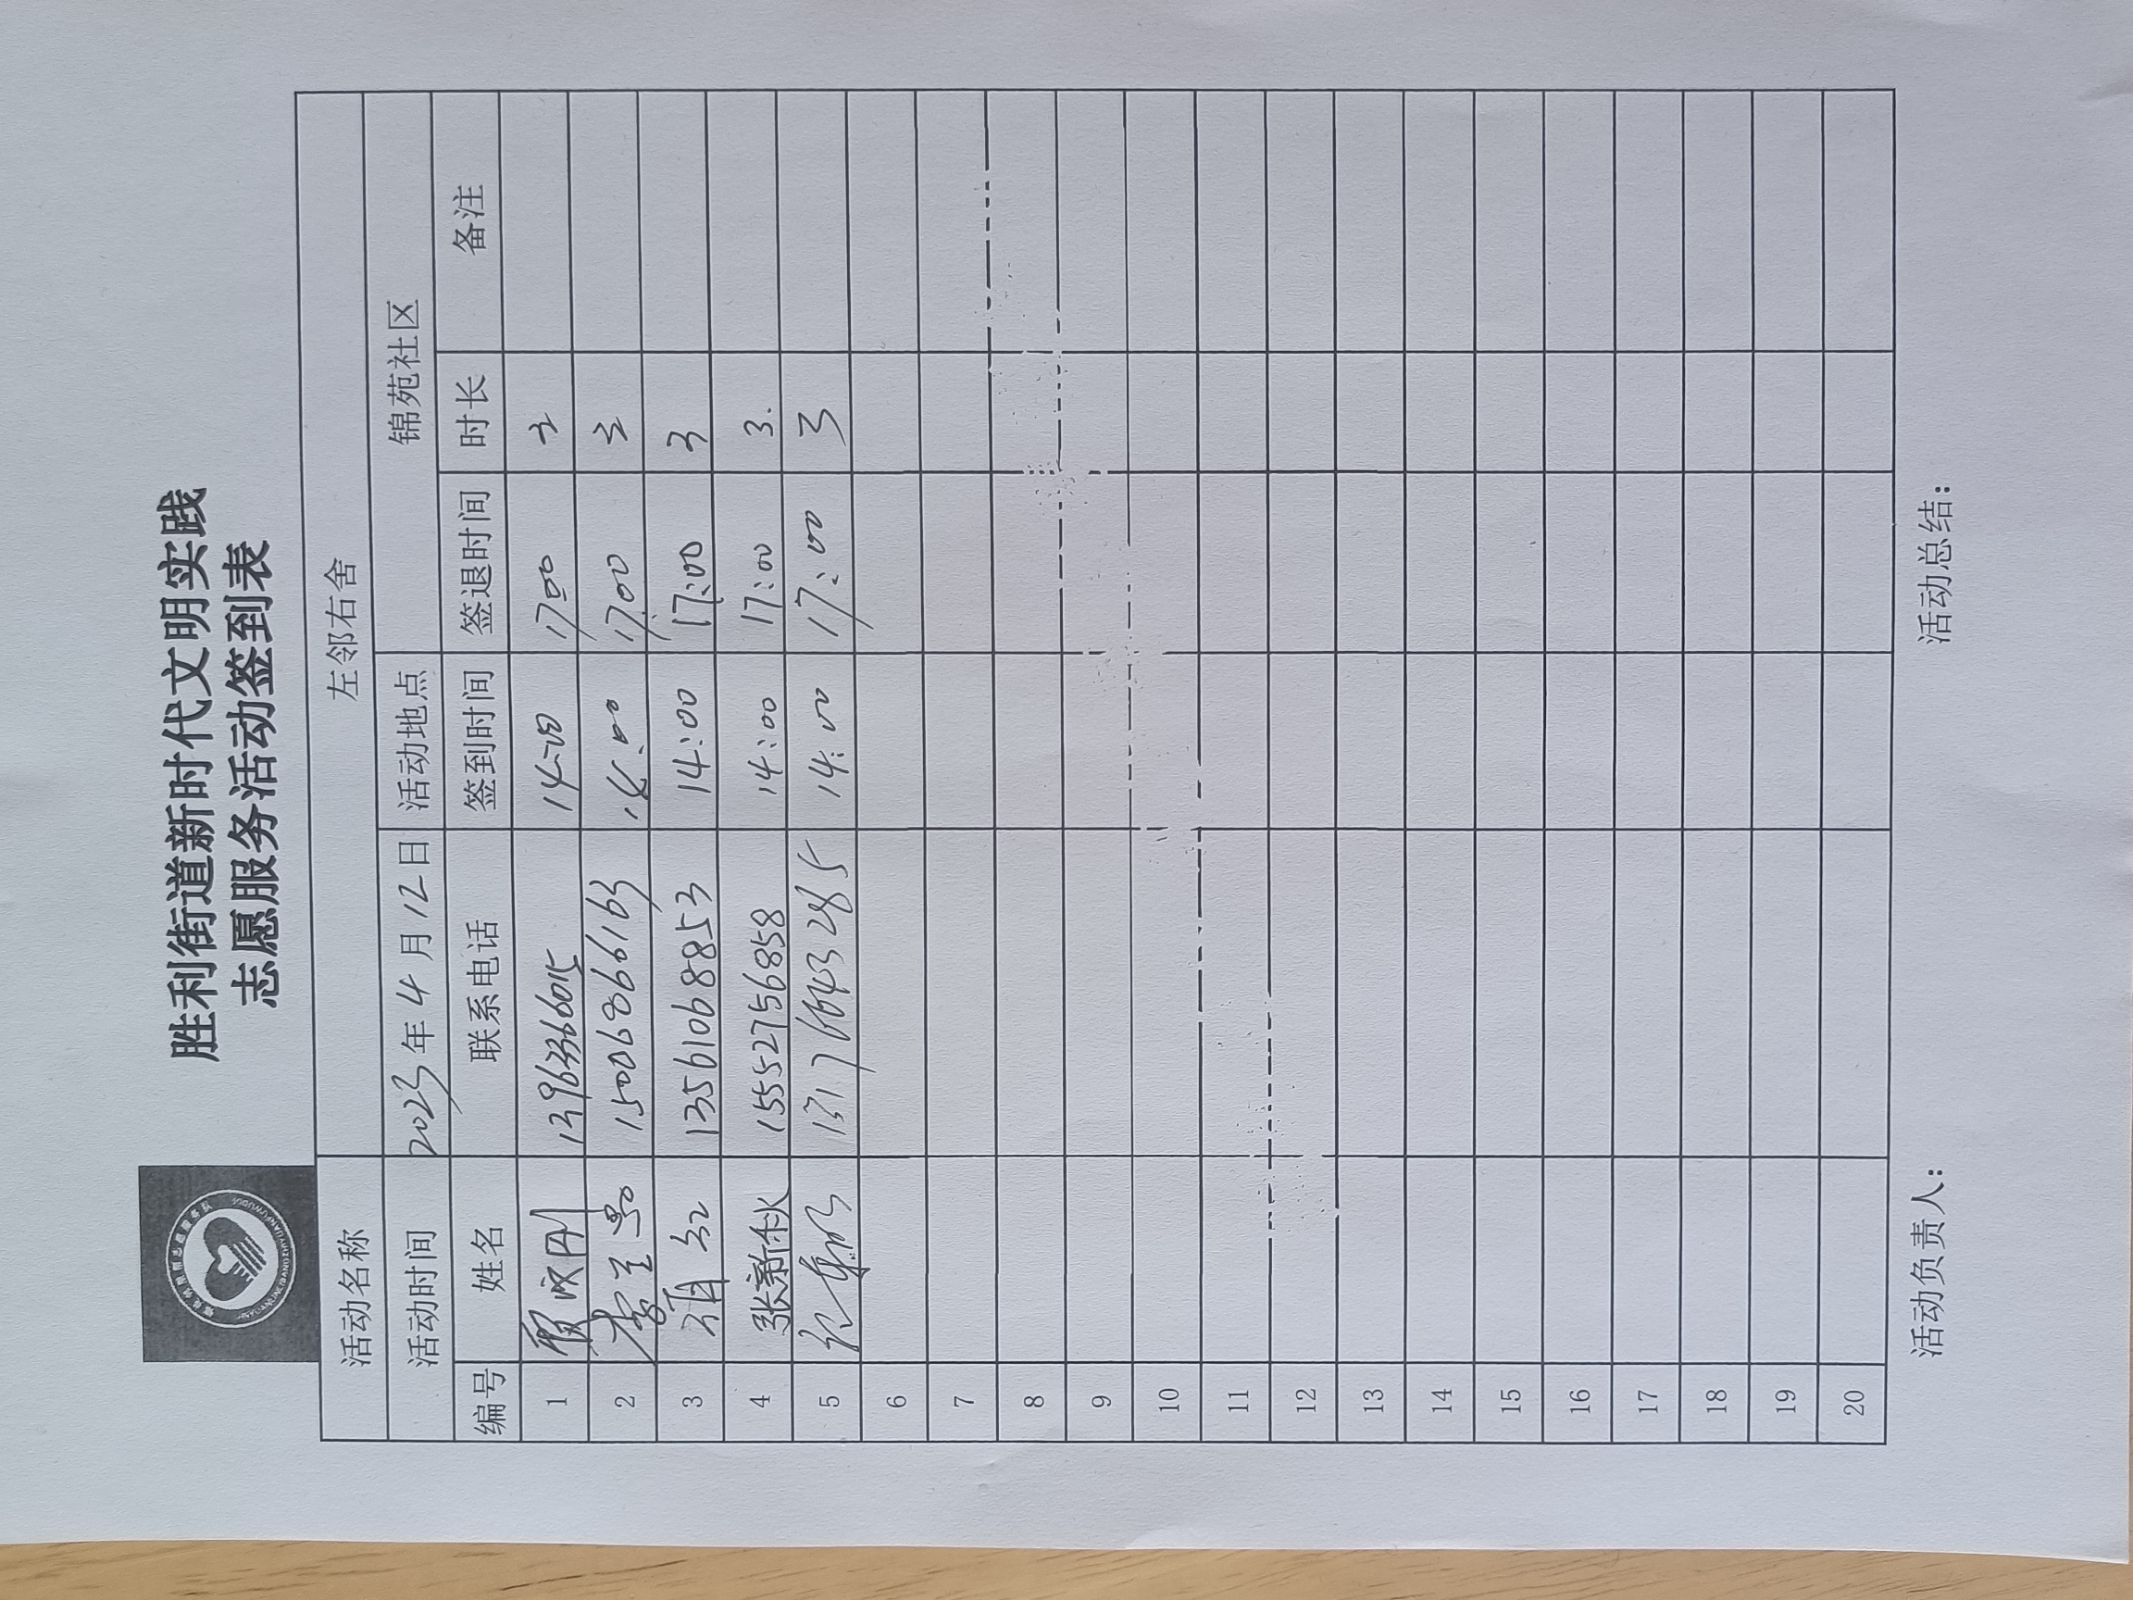 胜利街道新时代文明实践
志愿服务活动签到表
活动名称 左邻右舍
活动时间 2023年4月12日 活动地点 锦苑社区
编号 姓名 联系电话 签到时间 签退时间 时长 备注
1 14:00 17:00 3
2 15006866163 14:00 17:00 3
3 13561068853 14:00 17:00 3
4 张新秋 15552756858 14:00 17:00 3.
5 14:00 17:00 3
6
7
8
9
10
11
12
13
14
15
16
17
18
19
20
活动负责人： 活动总结：